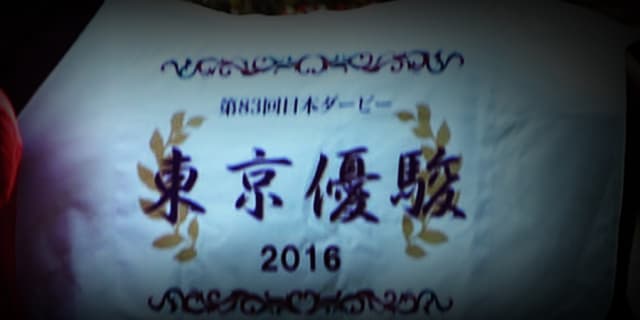 第83回日本ダービー
東京優駿
2016